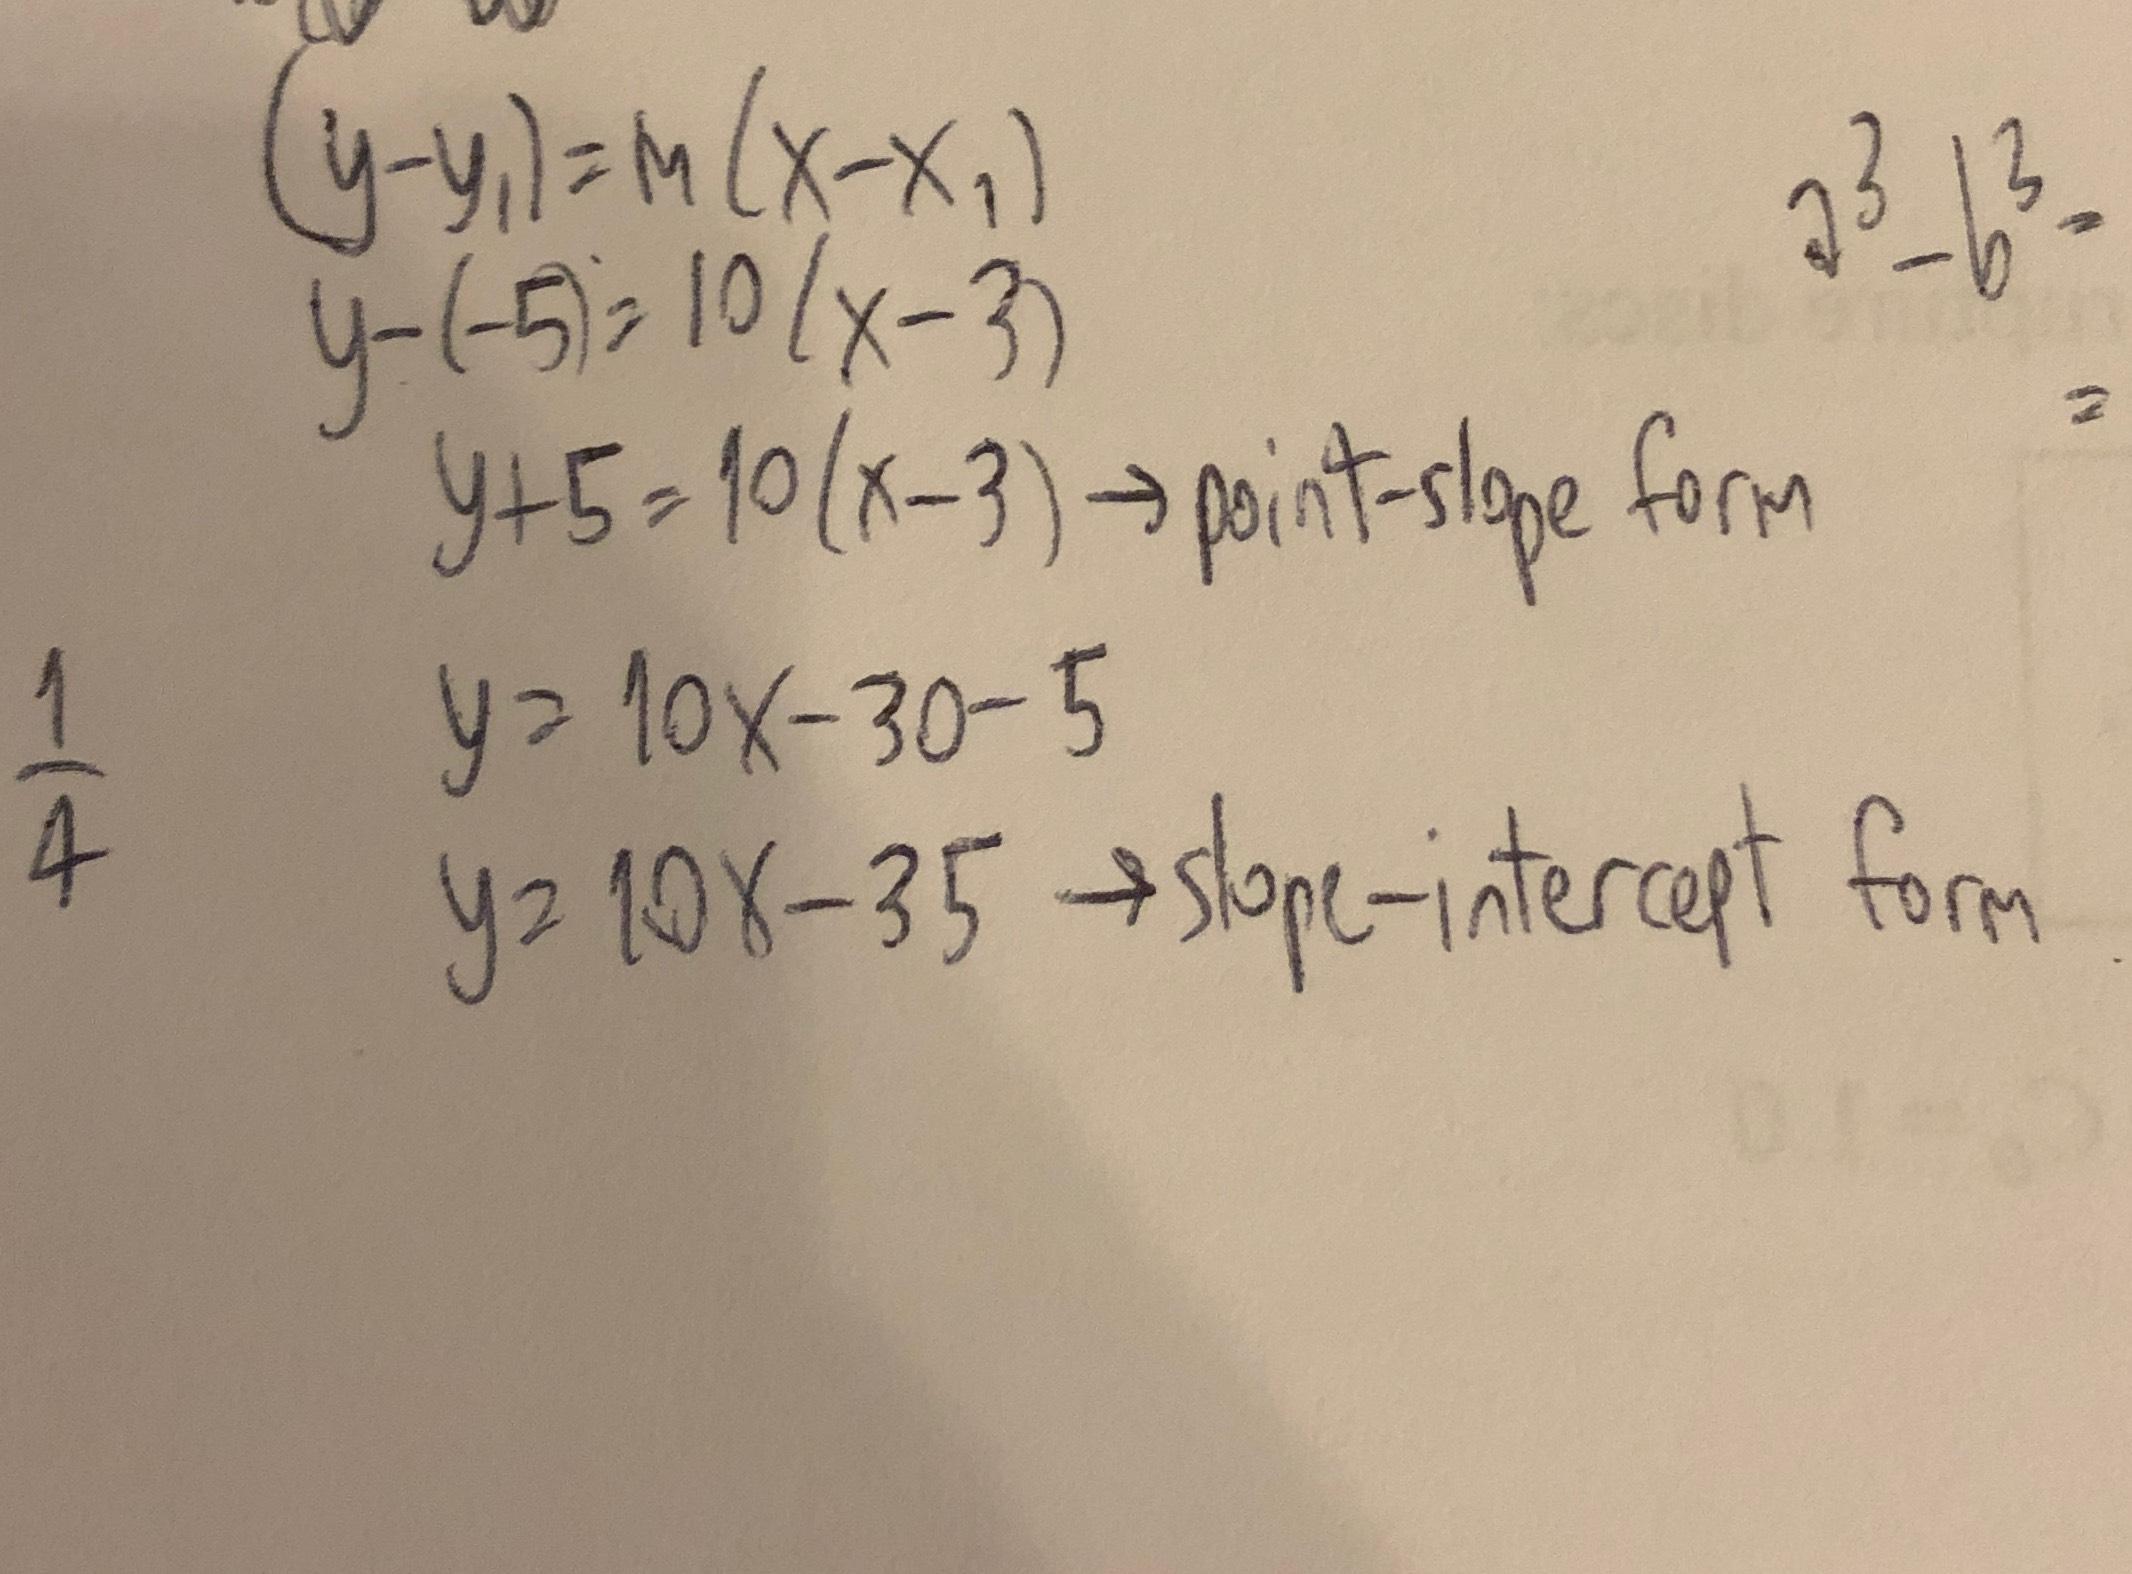 (y-y₁)=m(x-x₁)
y-(-5)=10(x-3)
y+5=10(x-3)→point-slope form
y=10x-30-5
y=10x-35 →slope-intercept form
1
4
a³-b³=
=